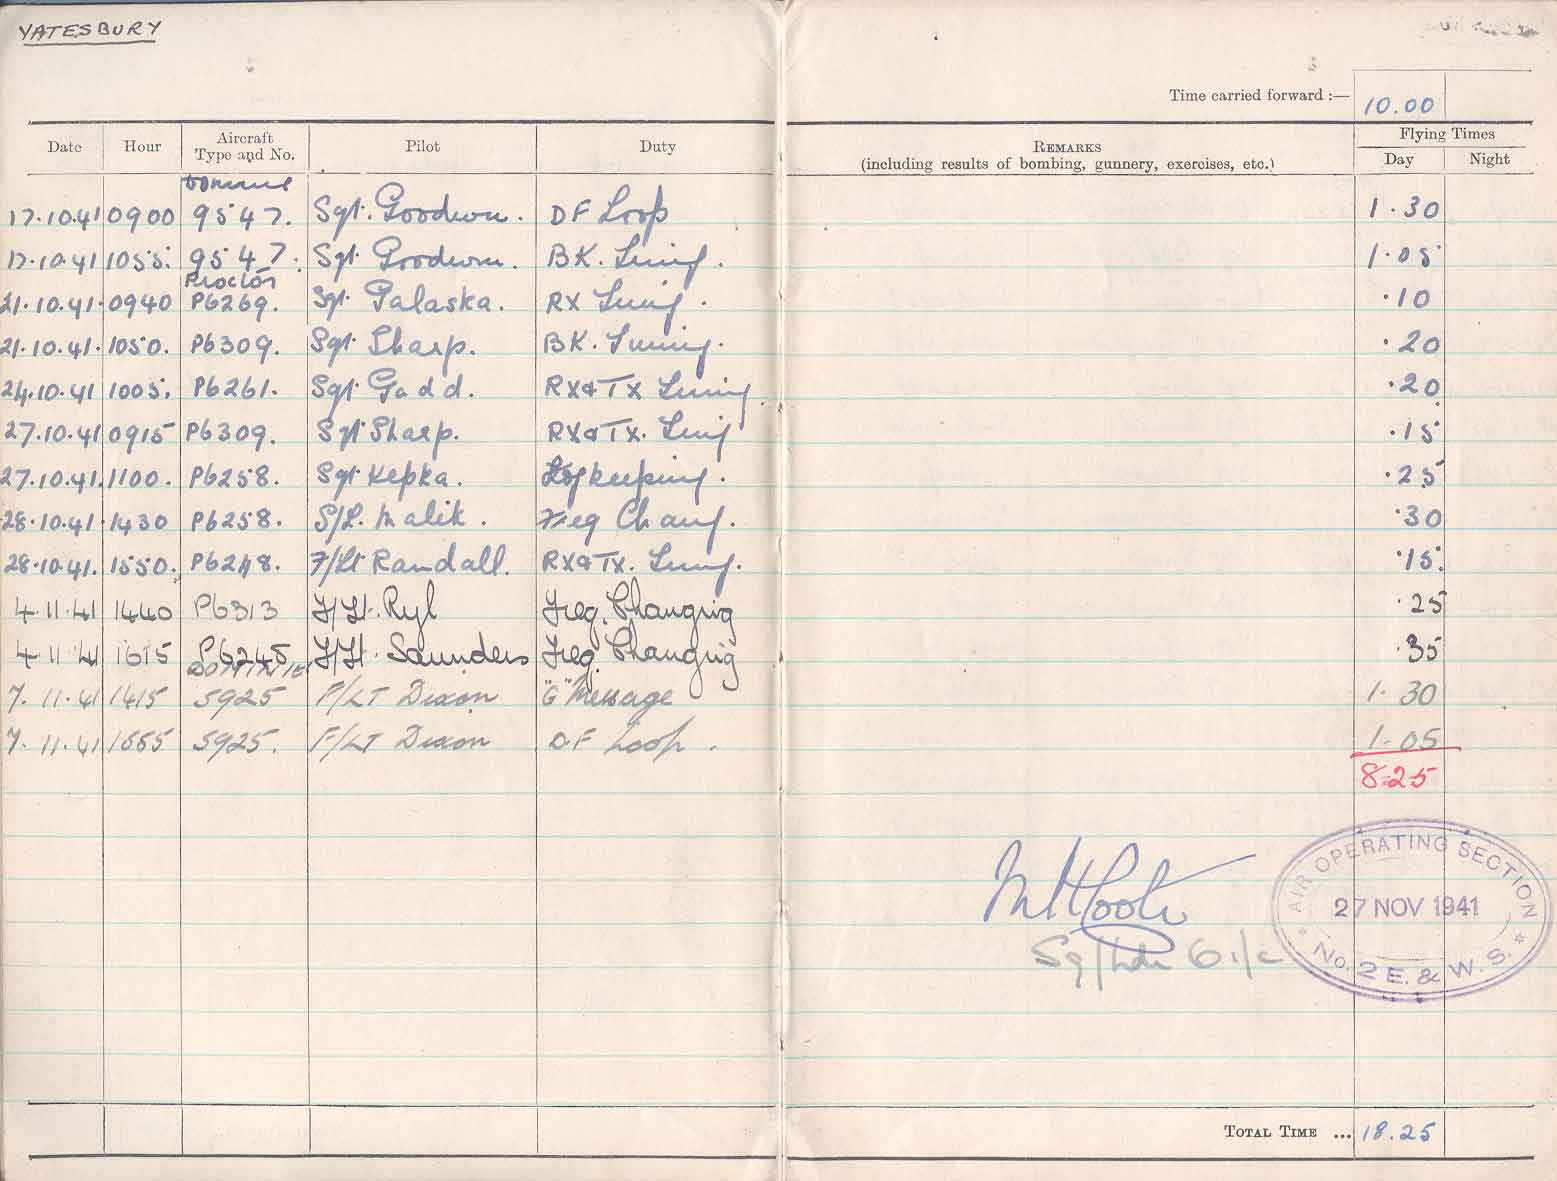 YATESBURY
Time carried forward :— 10.00
Date Hour Aircraft Type and No. Pilot Duty REMARKS (including results of bombing, gunnery, exercises, etc.) Flying Times Day Night
17.10.41 0900 9547. Sgt. Goodwin. DF Loop 1.30
17.10.41 1055. 9547. Sgt. Goodwin. BK. Tuning. 1.05
Proctor
21.10.41. 0940 P6269. Sgt. Galaska. RX Tuning. .10
21.10.41. 1050. P6309. Sgt. Sharp. BK. Tuning. .20
24.10.41 1005. P6261. Sgt. Gadd. RX&TX Tuning. .20
27.10.41 0915 P6309. Sgt Sharp. RX&TX. Tuning .15
27.10.41. 1100. P6258. Sgt Kepka. Log keeping. .25
28.10.41. 1430 P6258. S/L. Malik. Freq Chang. .30
28.10.41. 1550. P6248. F/Lt Randall. RX&TX. Tuning. .15.
4.11.41 1440 P6313 F/Lt. Ryl Freq. Changing .25
4.11.41 1615 P6245 F/Lt. Saunders Freq. Changing .35
DOMINIE
7.11.41 1415 5925 F/LT Dixon "G" Message 1.30
7.11.41 1555 5925. F/LT Dixon DF Loop. 1.05
8.25
AIR OPERATING SECTION
27 NOV 1941
No. 2 E. & W. S.
Sq/Ldr O i/c
TOTAL TIME ... 18.25